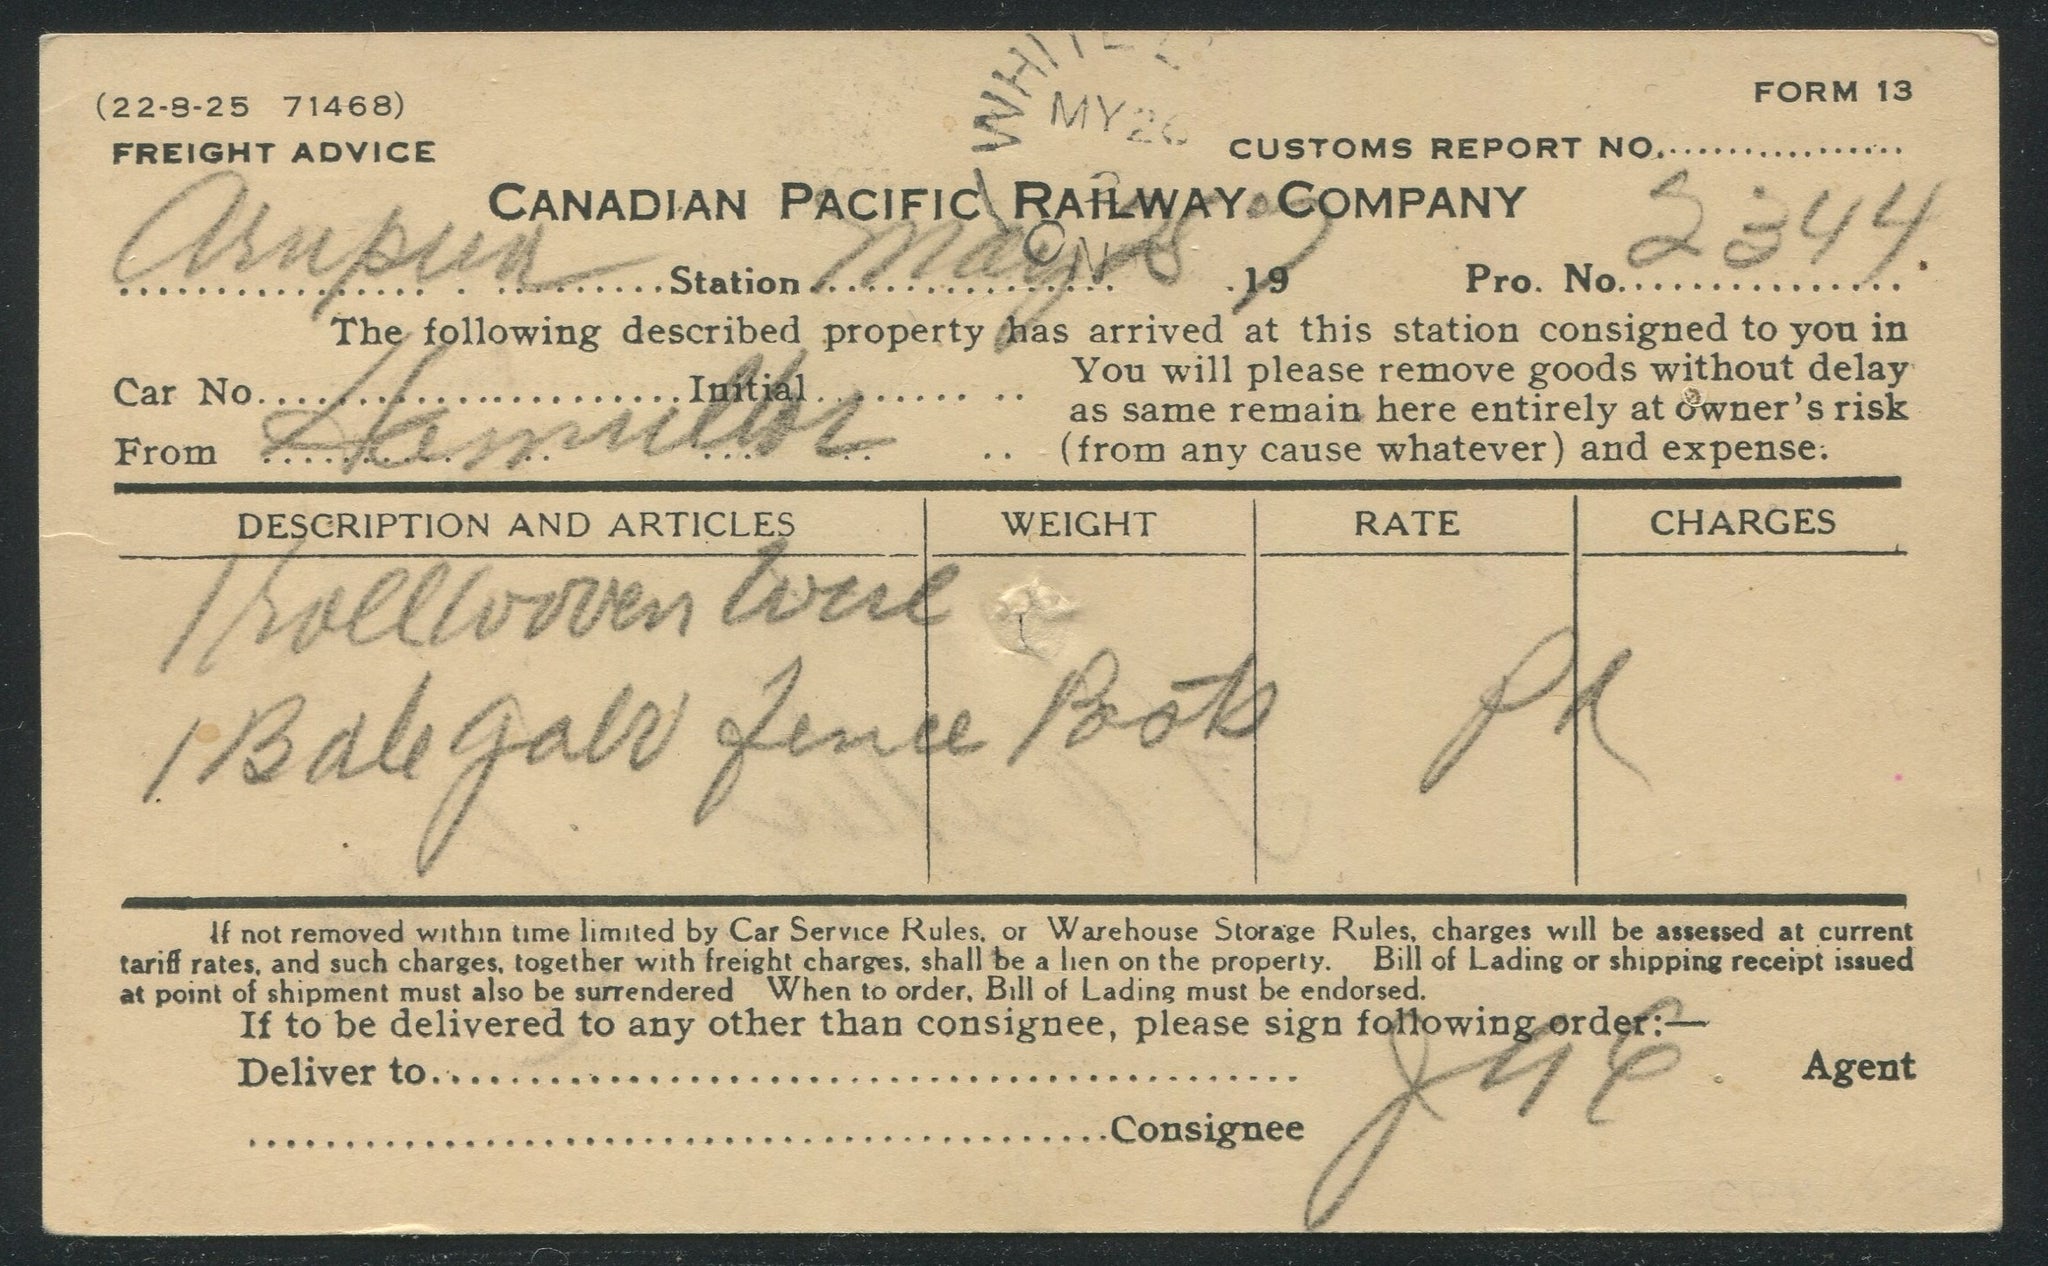 (22-8-25 71468)
FORM 13
WHITE
MY 26
ON
FREIGHT ADVICE
CUSTOMS REPORT NO.
CANADIAN PACIFIC RAILWAY COMPANY
Station May 25 19 Pro. No. 2344
The following described property has arrived at this station consigned to you in
Car No. Initial
You will please remove goods without delay
as same remain here entirely at owner's risk
From Hamilton
(from any cause whatever) and expense.
DESCRIPTION AND ARTICLES WEIGHT RATE CHARGES
1 roll woven wire
1 Bale Galv fence Posts
If not removed within time limited by Car Service Rules, or Warehouse Storage Rules, charges will be assessed at current
tariff rates, and such charges, together with freight charges, shall be a lien on the property. Bill of Lading or shipping receipt issued
at point of shipment must also be surrendered When to order, Bill of Lading must be endorsed.
If to be delivered to any other than consignee, please sign following order:—
Deliver to
Agent
Consignee